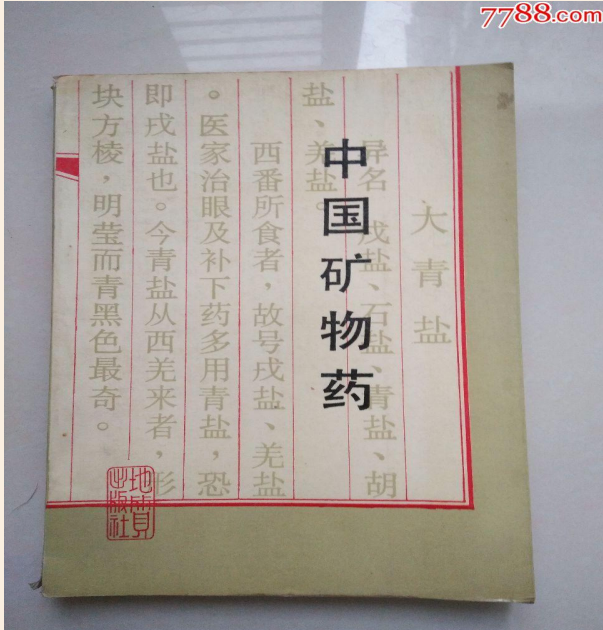 7788.com
中国矿物药
大青盐
异名 戎盐、石盐、青盐、胡
盐、羌盐。
西番所食者，故号戎盐、羌盐
。医家治眼及补下药多用青盐，恐
即戎盐也。今青盐从西羌来者，形
块方棱，明莹而青黑色最奇。
地質
出版社